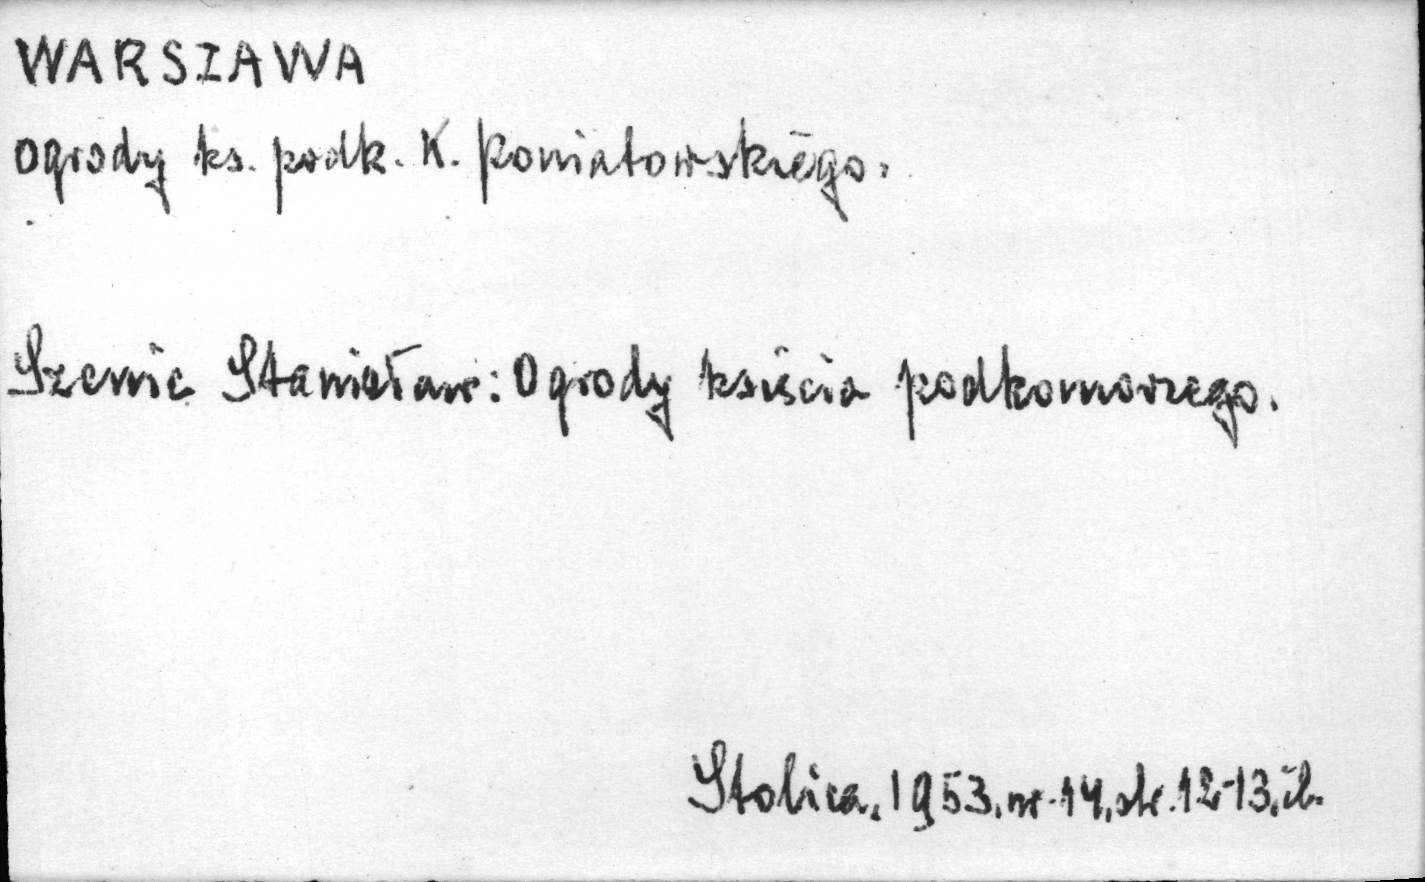 WARSZAWA
Ogrody ks. podk. K. Poniatowskiego.
Szenic Stanisław: Ogrody księcia podkomorzego.
Stolica, 1953, nr. 14, str. 12-13, il.